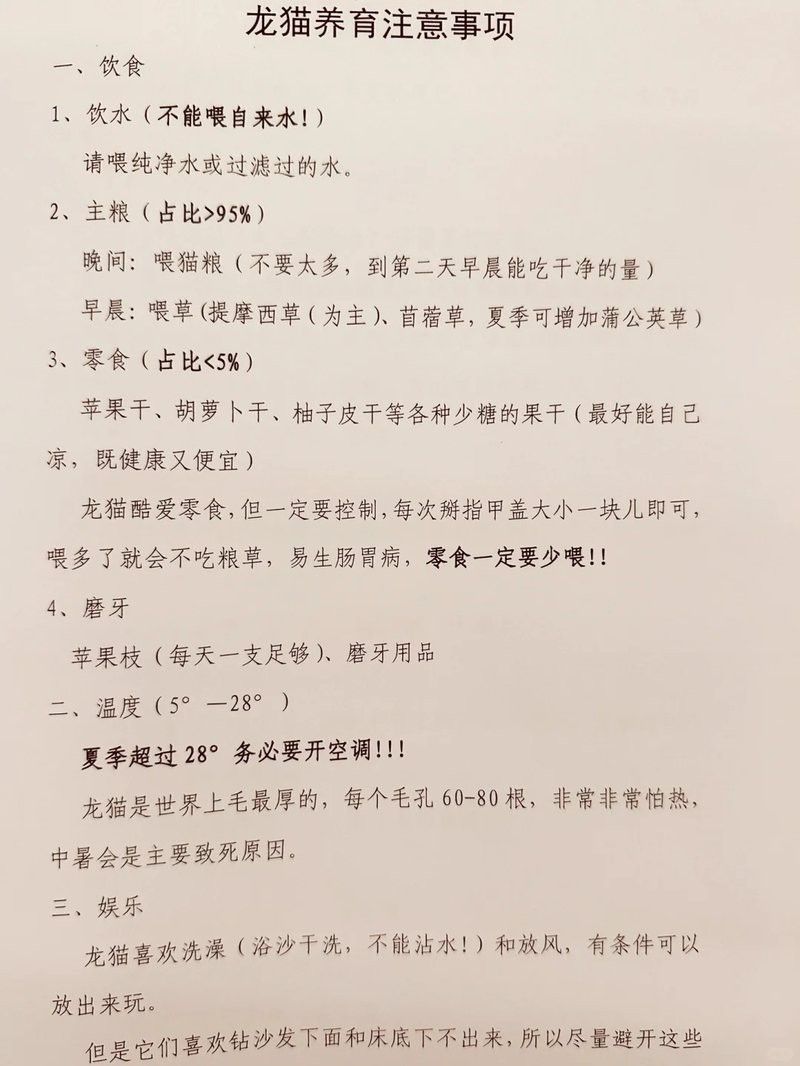 龙猫养育注意事项
一、饮食
1、饮水（不能喂自来水！）
请喂纯净水或过滤过的水。
2、主粮（占比>95%）
晚间：喂猫粮（不要太多，到第二天早晨能吃干净的量）
早晨：喂草(提摩西草（为主）、苜蓿草，夏季可增加蒲公英草）
3、零食（占比<5%）
苹果干、胡萝卜干、柚子皮干等各种少糖的果干（最好能自己
凉，既健康又便宜）
龙猫酷爱零食，但一定要控制，每次掰指甲盖大小一块儿即可，
喂多了就会不吃粮草，易生肠胃病，零食一定要少喂!!
4、磨牙
苹果枝（每天一支足够）、磨牙用品
二、温度（5° —28° ）
夏季超过 28° 务必要开空调!!!
龙猫是世界上毛最厚的，每个毛孔 60-80 根，非常非常怕热，
中暑会是主要致死原因。
三、娱乐
龙猫喜欢洗澡（浴沙干洗，不能沾水！）和放风，有条件可以
放出来玩。
但是它们喜欢钻沙发下面和床底下不出来，所以尽量避开这些